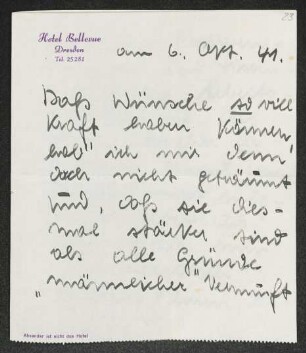 23
Hotel Bellevue
Dresden
Tel. 25281
am 6. Okt. 41.
Daß Wünsche so viel
Kraft haben können
hab' ich mir denn
doch nicht geträumt
und, daß sie dies-
mal stärker sind
als alle Gründe
„männlicher" Vernunft
Absender ist nicht das Hotel